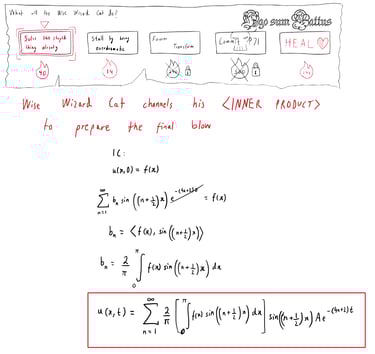 What will the Wise Wizard Cat do?
Ego sum Cattus
Solve the stupid thing already
Stall by being overdramatic
Fourier Transform
HEAL
40
14
Wise Wizard Cat channels his <INNER PRODUCT>
to prepare the final blow
IC:
u(x,0) = f(x)
∑_{n=1}^{∞} b_n sin((n+½)x) e^{-(4n+2)t} = f(x)
b_n = <f(x), sin((n+½)x)>
b_n = 2/π ∫_0^π f(x) sin((n+½)x) dx
u(x,t) = ∑_{n=1}^{∞} 2/π [∫_0^π f(x) sin((n+½)x) dx] sin((n+½)x) A e^{-(4n+2)t}